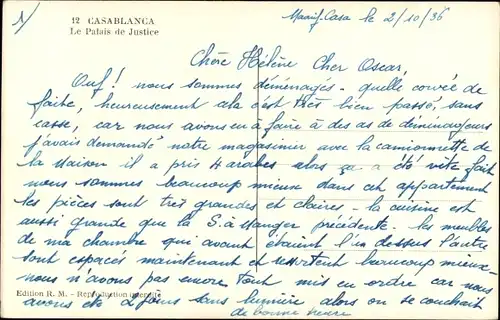 1/
12 CASABLANCA
Le Palais de Justice
Maarif-Casa le 2/10/36
Chère Hélène Cher Oscar,
Ouf! nous sommes déménagés - quelle corvée de
faite, heureusement cela c'est très bien passé, sans
casse, car nous avons eu à faire à des as de déménageurs
j'avais demandé notre magasinier avec la camionnette de
la Maison il a pris 4 arabes alors ça a été vite fait
nous sommes beaucoup mieux dans cet appartement
les pièces sont très grandes et claires - la cuisine est
aussi grande que la S. à Manger précédente. les meubles
de ma chambre qui avant étaient l'un dessus l'autre
sont espacés maintenant et ressortent beaucoup mieux
nous n'avons pas encore tout mis en ordre car nous
Edition R. M. - Reproduction interdite
avons été 2 jours sans lumière alors on se couchait
de bonne heure